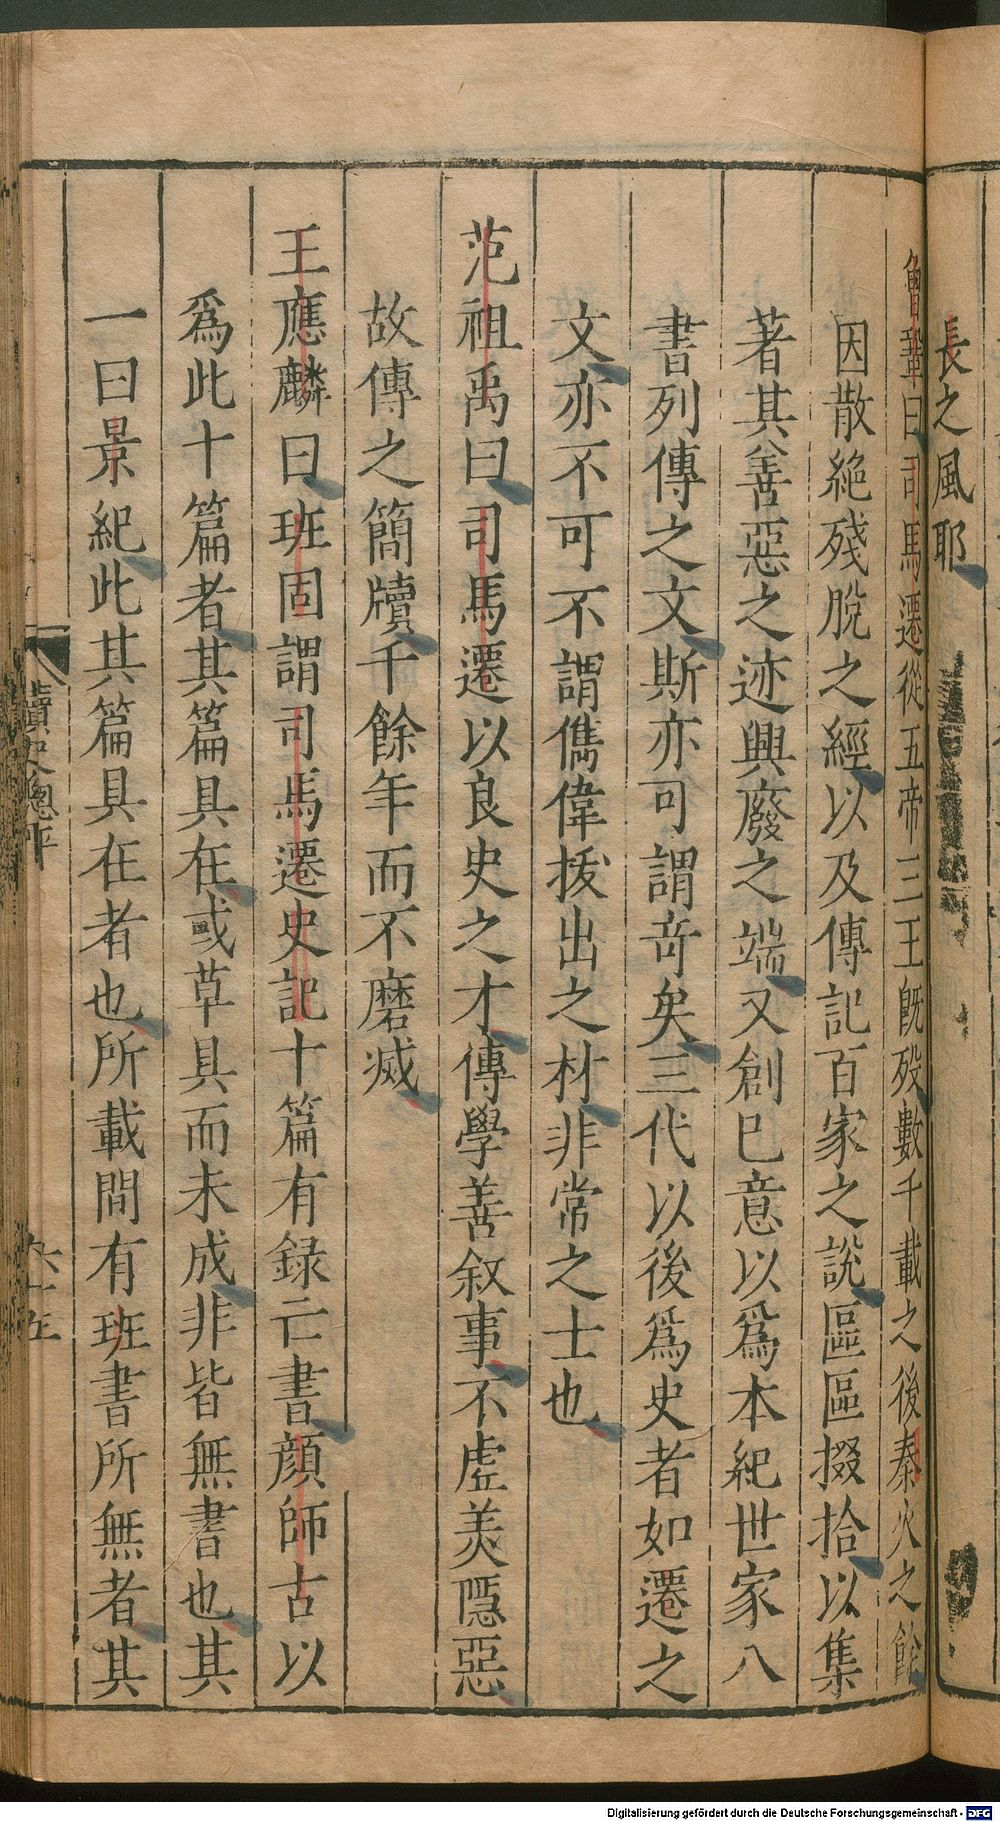 長之風耶
曾鞏曰司馬遷從五帝三王旣殁數千載之後秦火之餘
因散絶殘脫之經以及傳記百家之說區區掇拾以集
著其善惡之迹興廢之端又創已意以爲本紀世家八
書列傳之文斯亦可謂竒矣三代以後爲史者如遷之
文亦不可不謂儁偉拔出之材非常之士也
范祖禹曰司馬遷以良史之才傳學善叙事不虛美隱惡
故傳之簡牘千餘年而不磨滅
王應麟曰班固謂司馬遷史記十篇有録亡書顔師古以
爲此十篇者其篇具在或草具而未成非皆無書也其
一曰景紀此其篇具在者也所載間有班書所無者其
讀史總評
六十五
Digitalisierung gefördert durch die Deutsche Forschungsgemeinschaft - DFG